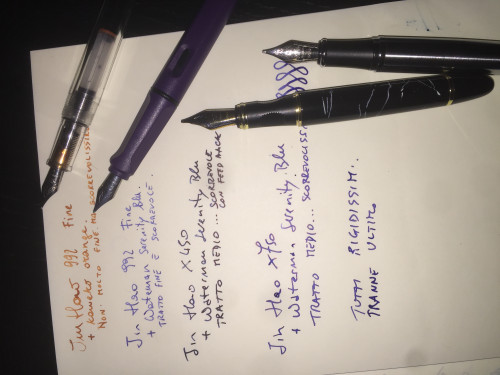 Jin Hao 992 Fine
+ Kaweko orange.
NON MOLTO FINE MA SCORREVOLISSIMA
Jin Hao 992 Fine
+ Waterman Serenity Blu.
TRATTO FINE E SCORREVOLE.
Jin Hao X450
+ Waterman Serenity Blu
TRATTO MEDIO... SCORREVOLE
CON FEEDBACK
Jin Hao X750
+ Waterman Serenity Blu
TRATTO MEDIO... SCORREVOLISS
TUTTI RIGIDISSIMI.
TRANNE ULTIMO